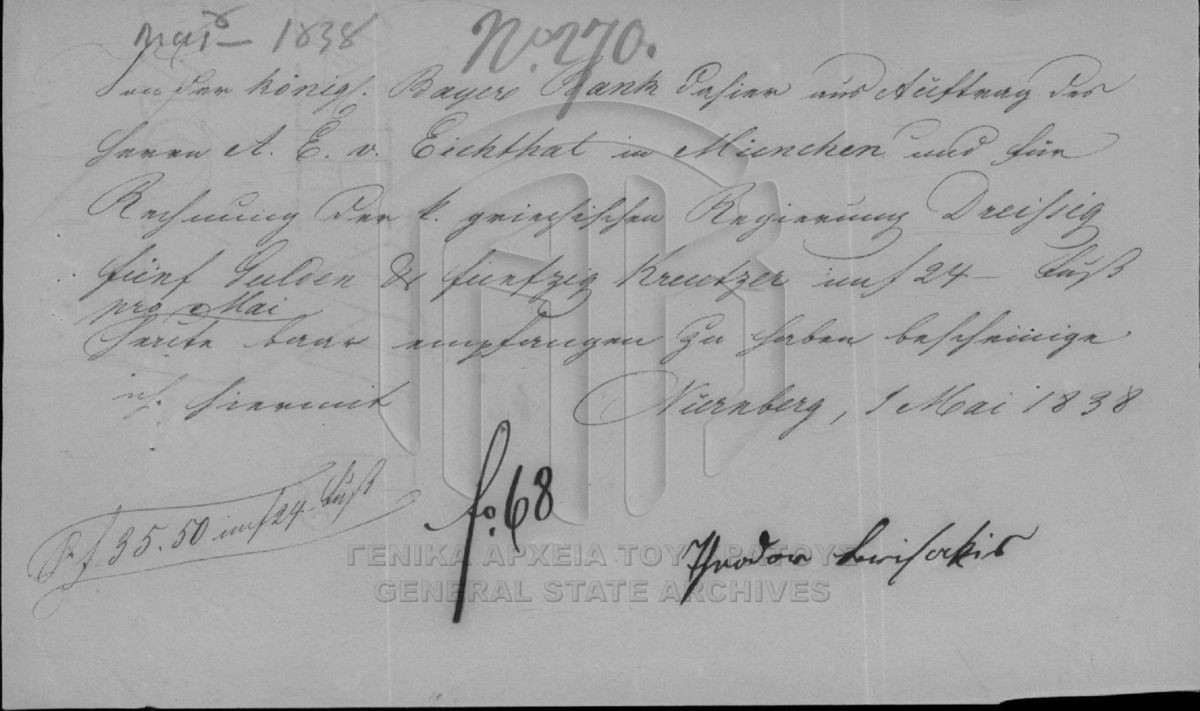 Mai 1838
No. 270.
Von der königl. Bayer. Bank dahier aus Auftrag des
Herrn A. E. v. Eichthal in München und für
Rechnung der k. griechischen Regierung Dreissig
fünf Gulden & fünfzig Kreutzer im f 24 Fuß
pro Mai
heute baar empfangen zu haben bescheinige
ich hiermit Nürnberg, 1 Mai 1838
f 35.50 im f 24 Fuß
fo. 68
Theodor
ΓΕΝΙΚΑ ΑΡΧΕΙΑ ΤΟΥ ΚΡΑΤΟΥΣ
GENERAL STATE ARCHIVES